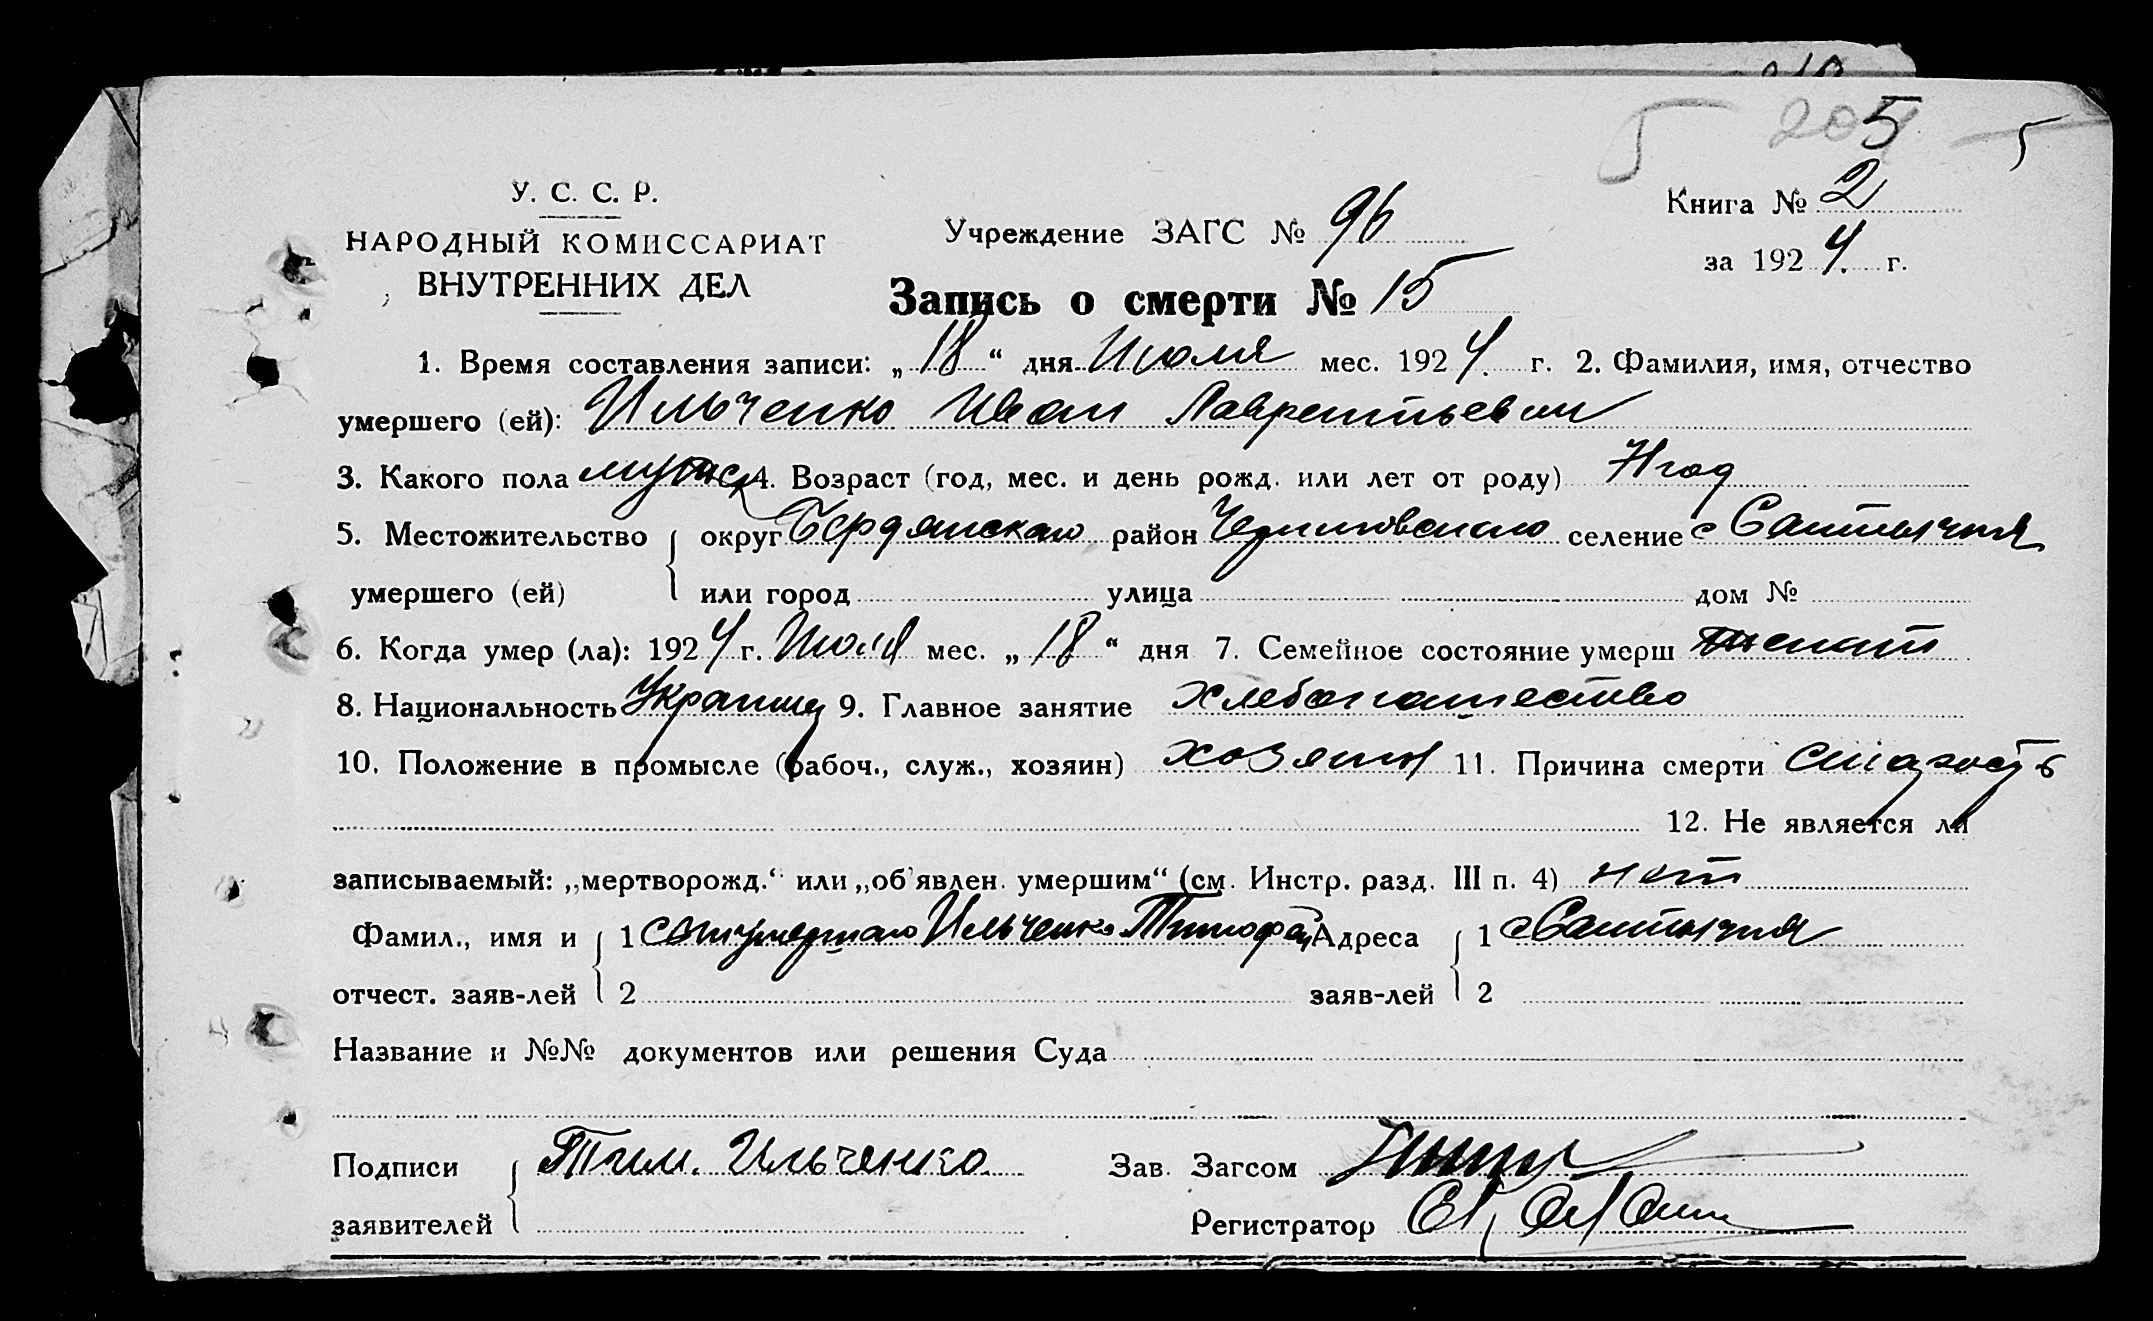 5 205 5
У. С. С. Р.
НАРОДНЫЙ КОМИССАРИАТ
ВНУТРЕННИХ ДЕЛ
Учреждение ЗАГС № 96
Книга № 2
за 1924. г.
Запись о смерти № 15
1. Время составления записи: „18“ дня Июля мес. 1924. г. 2. Фамилия, имя, отчество
умершего (ей): Ильченко Иван Лаврентьевич
3. Какого пола мужск 4. Возраст (год, мес. и день рожд. или лет от роду) 71 год
5. Местожительство округ Бердянского район Черниговского селение с Салтычия
умершего (ей) или город улица дом №
6. Когда умер (ла): 1924 г. Июля мес. „18“ дня 7. Семейное состояние умерш женат
8. Национальность Украинец 9. Главное занятие хлебопашество
10. Положение в промысле (рабоч., служ., хозяин) хозяин 11. Причина смерти старость
12. Не является ли
записываемый: „мертворожд.“ или „об'явлен. умершим“ (см. Инстр. разд. III п. 4) нет
Фамил., имя и 1 сын умершаго Ильченко Тимофей Адреса 1 с Салтычия
отчест. заяв-лей 2 заяв-лей 2
Название и №№ документов или решения Суда
Подписи Тим. Ильченко Зав. Загсом
заявителей Регистратор